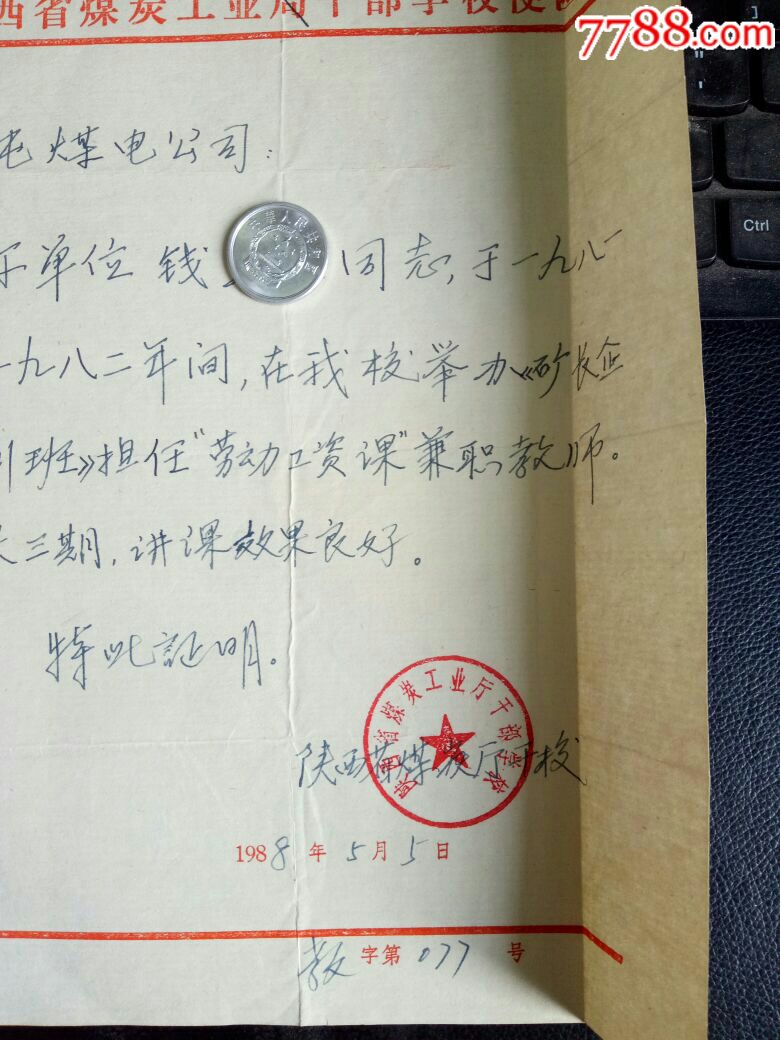 7788.com
西省煤炭工业局干部学校便
Ctrl
煤电公司：
单位 钱 同志，于一九八一
一九八二年间，在我校举办《矿长企
训班》担任“劳动工资课”兼职教师。
三期，讲课效果良好。
特此証明。
陕西省煤炭工业厅干部学校
陕西省煤炭厅干校
1988年5月5日
教字第077号